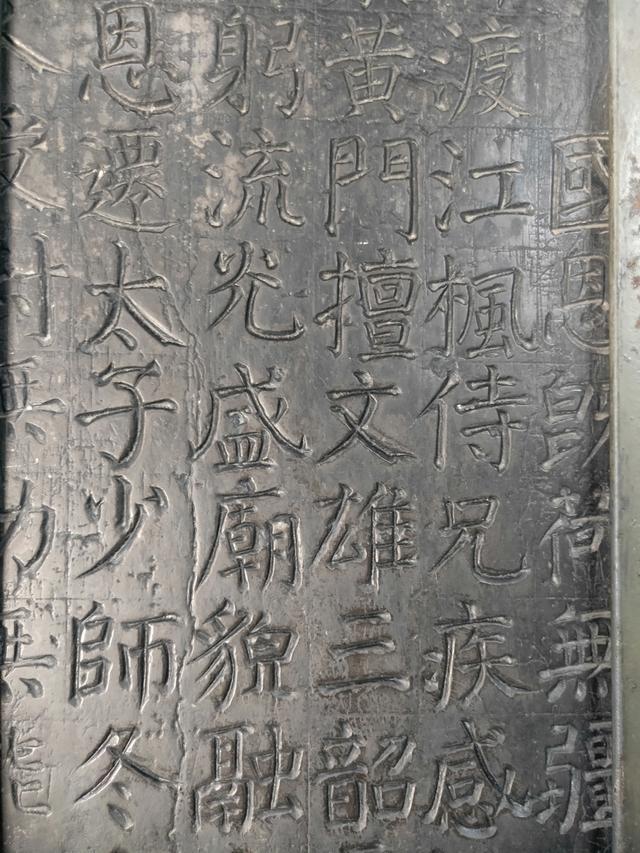 國恩荷無疆
渡江楓侍兄疾感
黃門擅文雄三韶
躬流光盛廟貌融
恩遷太子少師冬